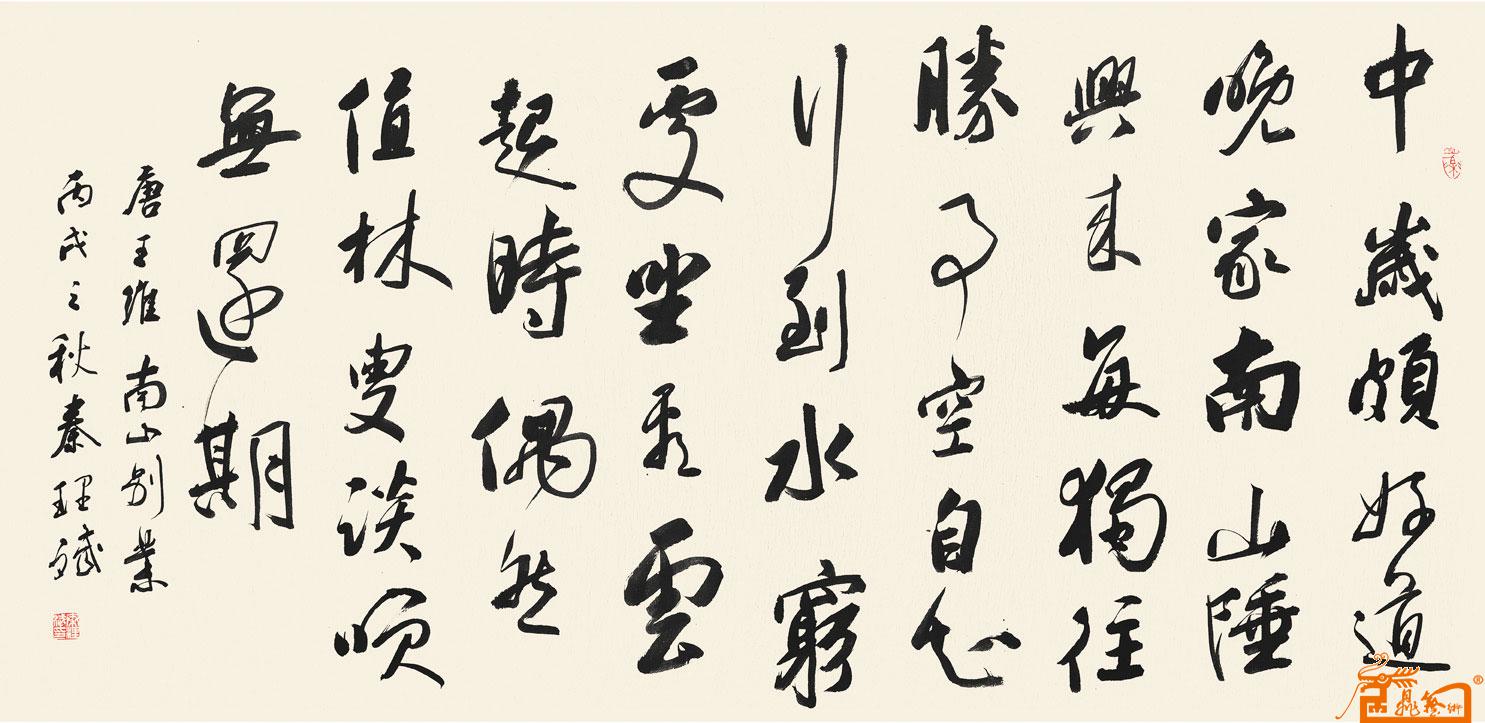 中歲頗好道
晚家南山陲
興来每獨往
勝事空自知
行到水窮
處坐看雲
起時偶然
值林叟談咲
無還期
唐王維南山別業
丙戌之秋秦理斌